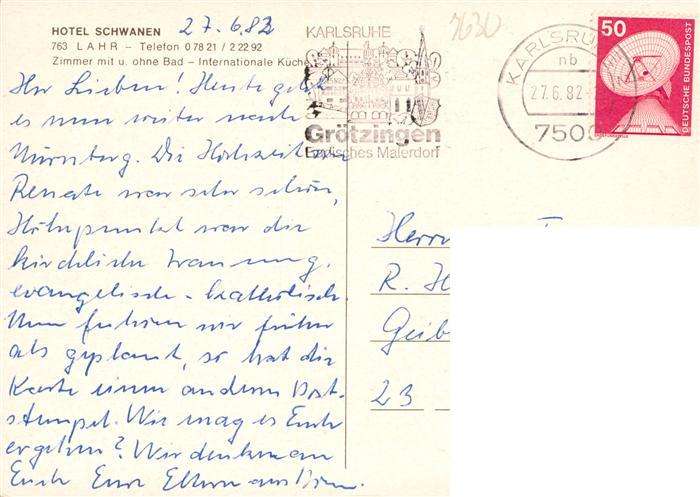 HOTEL SCHWANEN
27.6.82
763 LAHR – Telefon 07821 / 22292
Zimmer mit u. ohne Bad – Internationale Küche
Ihr Lieben! Heute geht
es nun weiter nach
Nürnberg. Die Hochzeit
Renate war sehr schön,
Höhepunkt war die
kirchliche Trauung,
evangelisch - katholisch.
Nun fuhren wir früher
als geplant, so hat die
Karte einen anderen Post-
stempel. Wie mag es Euch
ergehen? Wir denken an
Euch Eure Eltern aus
KARLSRUHE
Grötzingen
Badisches Malerdorf
7630
KARLSRUHE
nb
27.6.82
7500
50
DEUTSCHE BUNDESPOST
Herrn
R. H
Geib
23